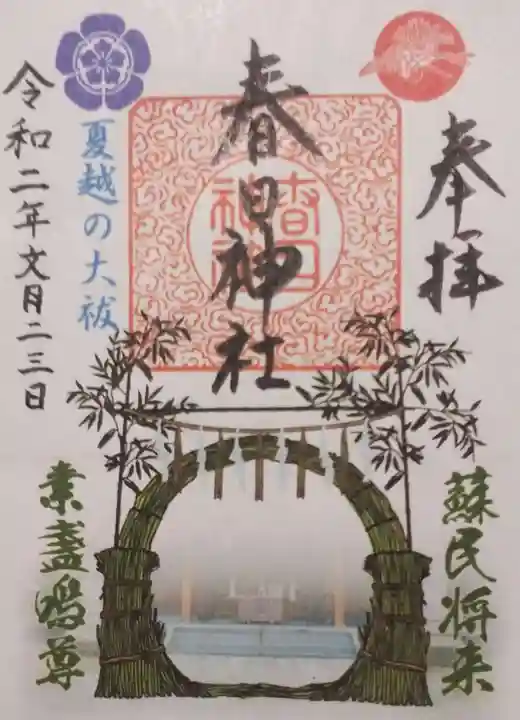 奉拝
春日神社
春日
神社
夏越の大祓
令和二年文月二三日
蘇民将来
素盞嗚尊